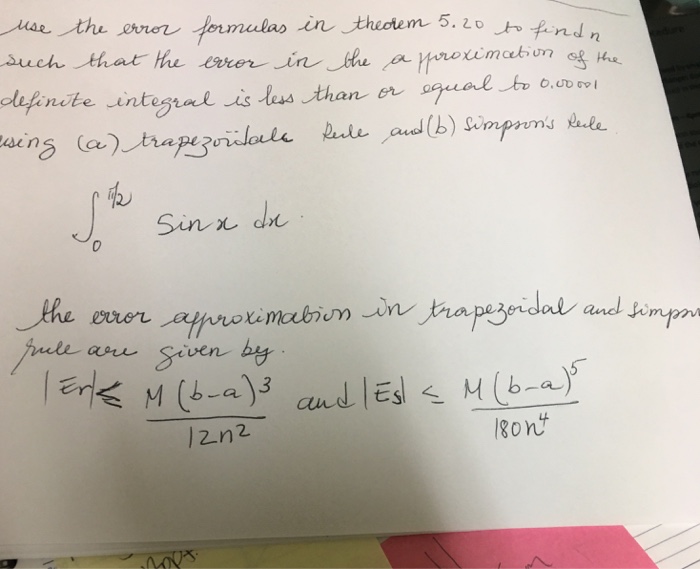 use the error formulas in theorem 5.20 to find n
such that the error in the approximation of the
definite integral is less than or equal to 0.00001
using (a) trapezoidale Rule and (b) Simpson's Rule
∫₀^{π/2} sin x dx.
the error approximation in trapezoidal and simpson
rule are given by.
|Er| ≤ M(b-a)³/12n² and |Es| ≤ M(b-a)⁵/180n⁴